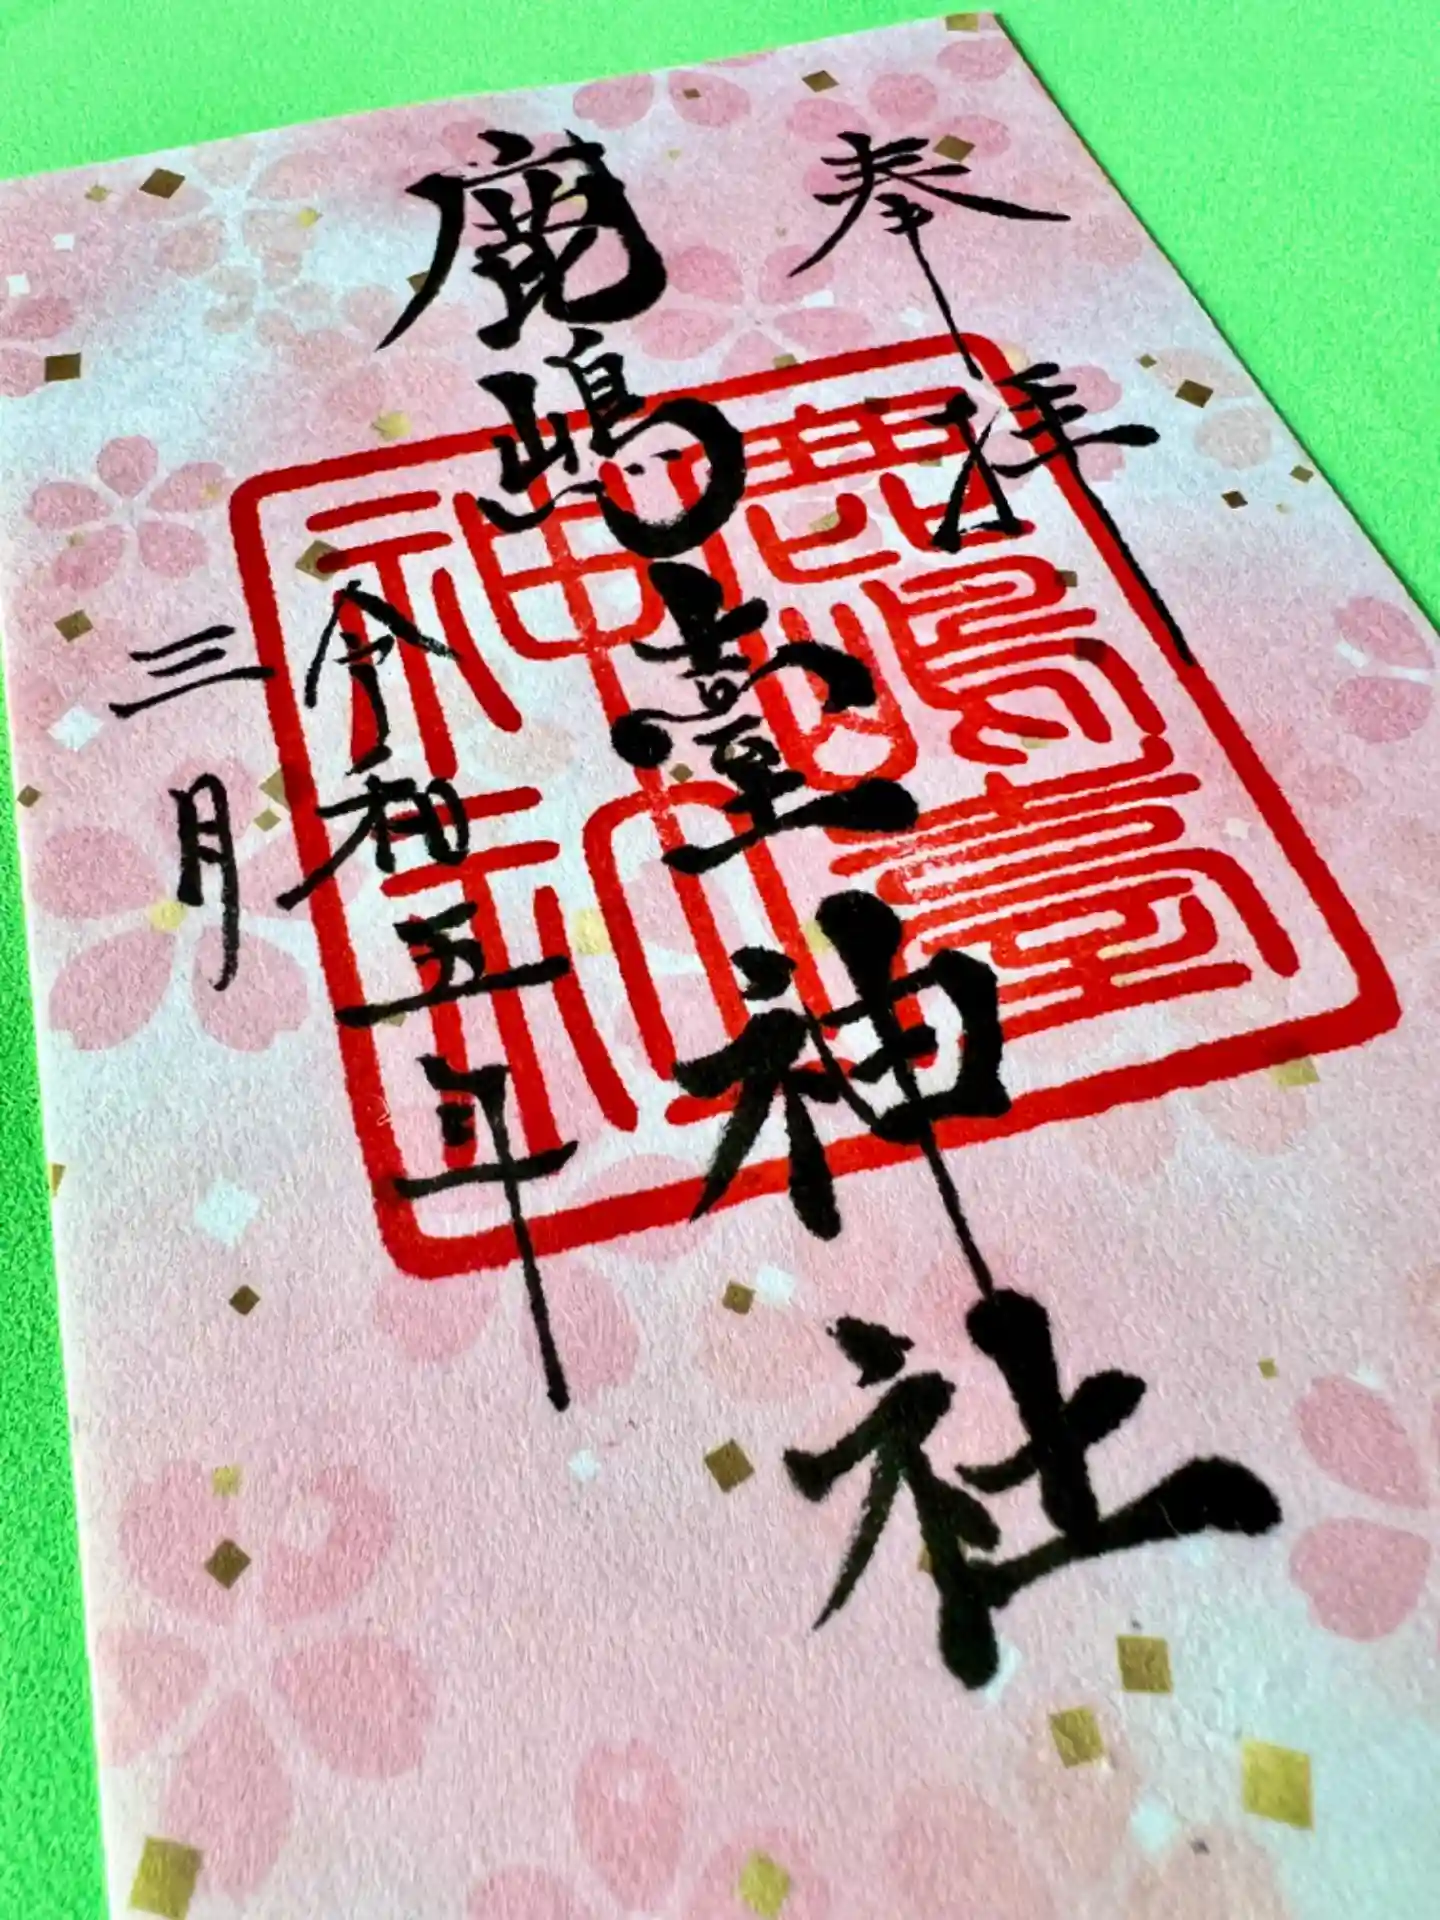 奉拝
鹿嶋臺神社
令和五年
三月
鹿嶋臺
神社印